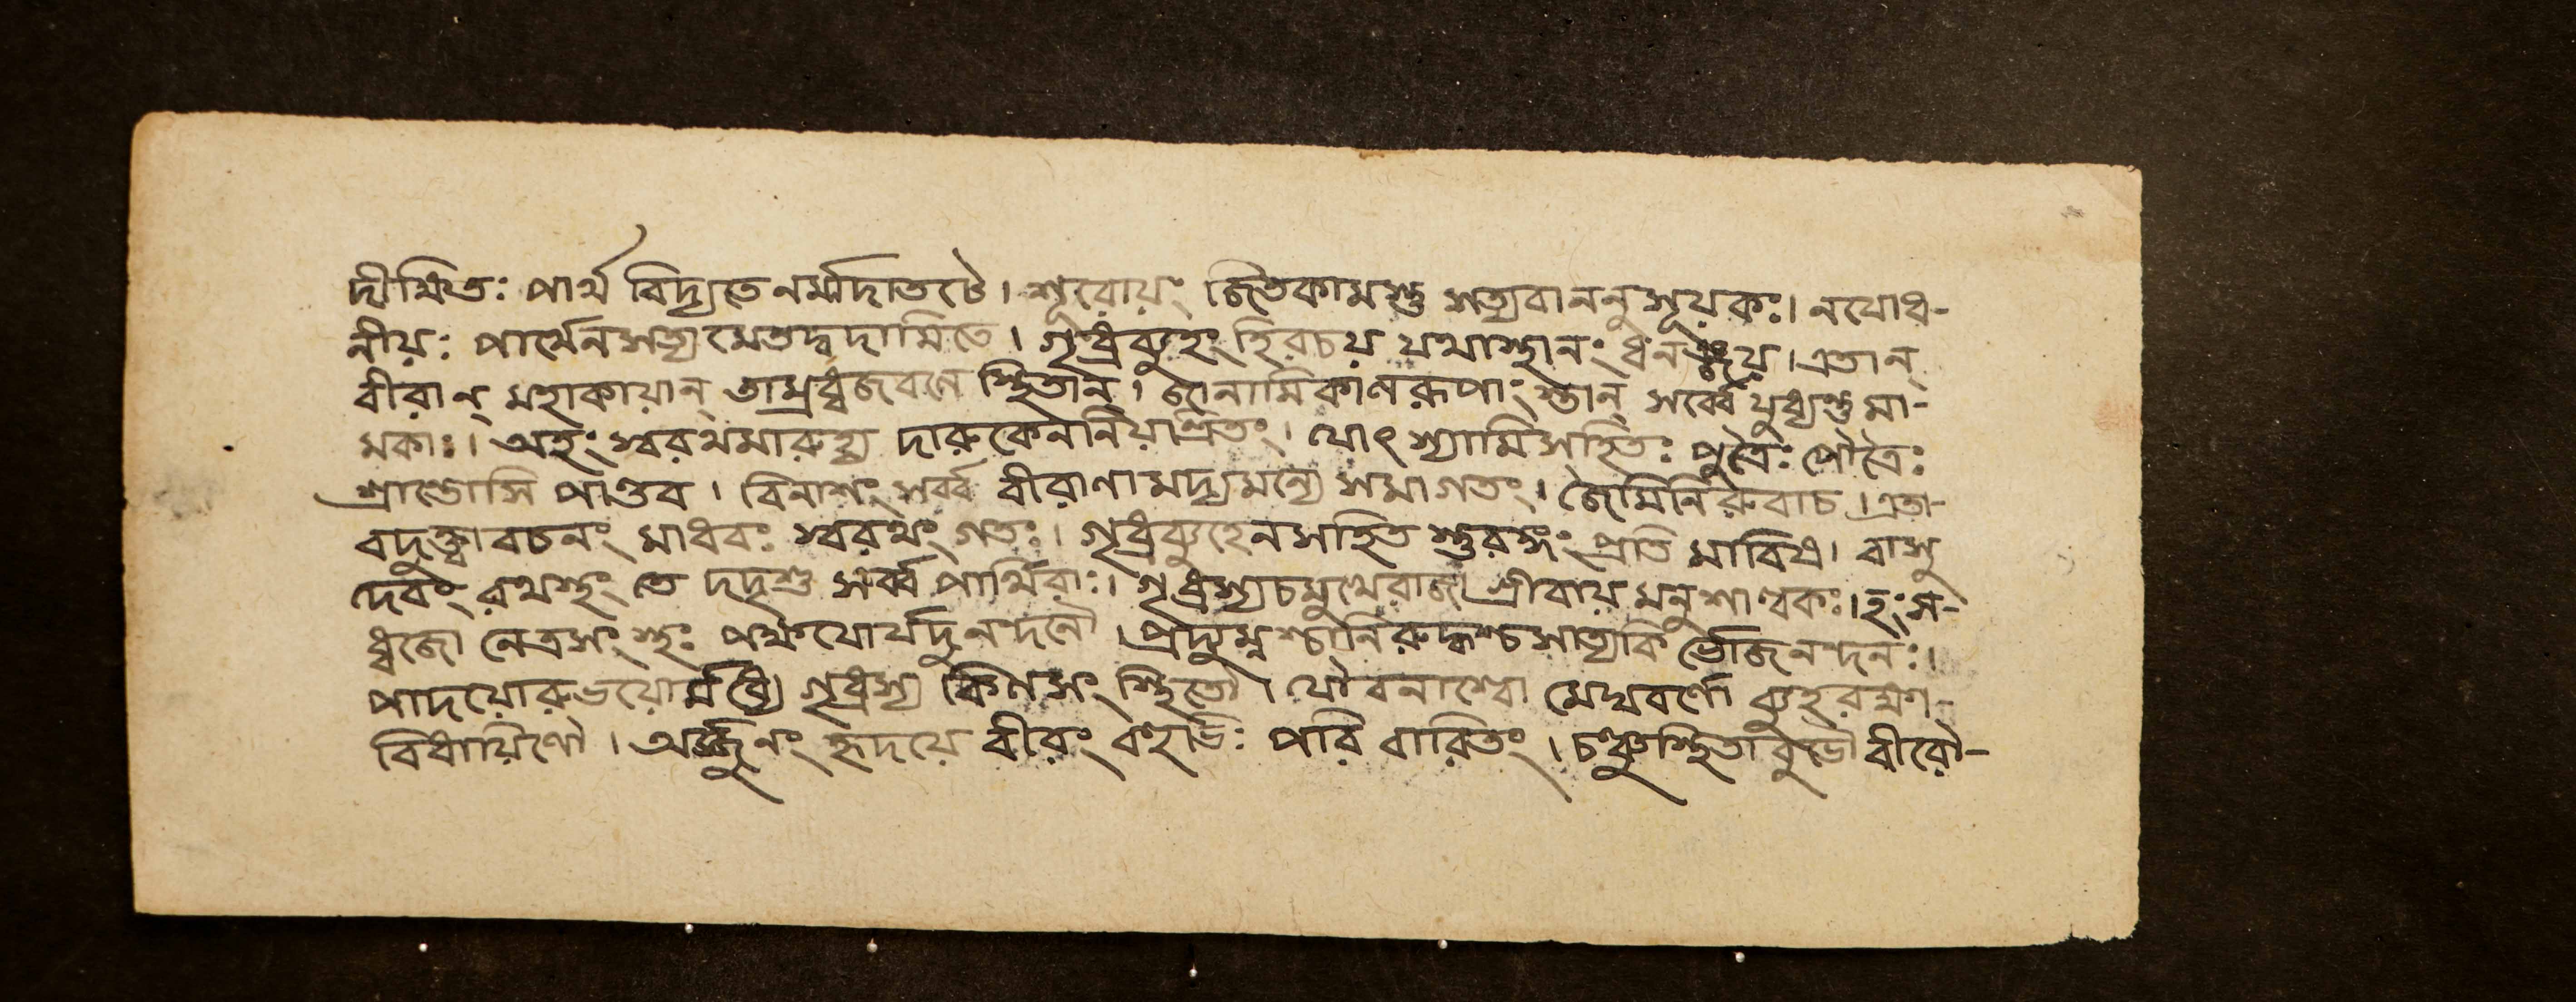 দীক্ষিতঃ পার্থ বিদ্যতে নর্মদাতটে। শূরোয়ং জিতকামস্তু সত্যবাননুসূয়কঃ। নযোধ-
নীয়ঃ পার্থেন সত্যমেতদ্বদামিতে। গৃধ্রব্যুহং হিরচয় যথাস্থানং ধনঞ্জয়। এতান্
বীরান্ মহাকায়ান্ তাম্রধ্বজবণে স্থিতান্। জানামিকালরূপাং স্তান্ সর্ব্বেযুধ্যন্তুমা-
মকাঃ। অহং স্বরথমারুহ্য দারুকেননিয়ন্ত্রিতং। যোৎ স্যামিসহিতঃ পুত্রৈঃ পৌত্রৈঃ
শ্রান্তোসি পাণ্ডব। বিনাশং সর্ব্ব বীরাণামদ্যমন্যে সমাগতং। জৈমিনিরুবাচ। এতা-
বদুক্ত্বাবচনং মাধবঃ স্বরথং গতঃ। গৃধ্রব্যুহেনসহিত স্তুরঙ্গং প্রতি মারিষ। বাসু
দেবং রথস্থং তে দদৃশু সর্ব্ব পার্থিবাঃ। গৃধ্রস্যচমুখেরাজা গ্রীবায়মনুশাল্বকঃ। হংস-
ধ্বজো নেত্রসংস্থঃ পক্ষযোর্যদুনন্দনৌ। প্রদ্যুম্নশ্চানিরুদ্ধশ্চসাত্যকি র্ভোজনন্দনঃ।
পাদয়োরুভয়োর্মধ্যে গৃধ্রস্য কিলসং স্থিতৌ। যৌবনাশ্বো মেঘবর্ণো ব্যুহরক্ষা-
বিধায়িণৌ। অর্জ্জুনং হৃদয়ে বীরং বহুভিঃ পরি বারিতং। চঞ্চুস্থিতাবুভৌ বীরৌ-